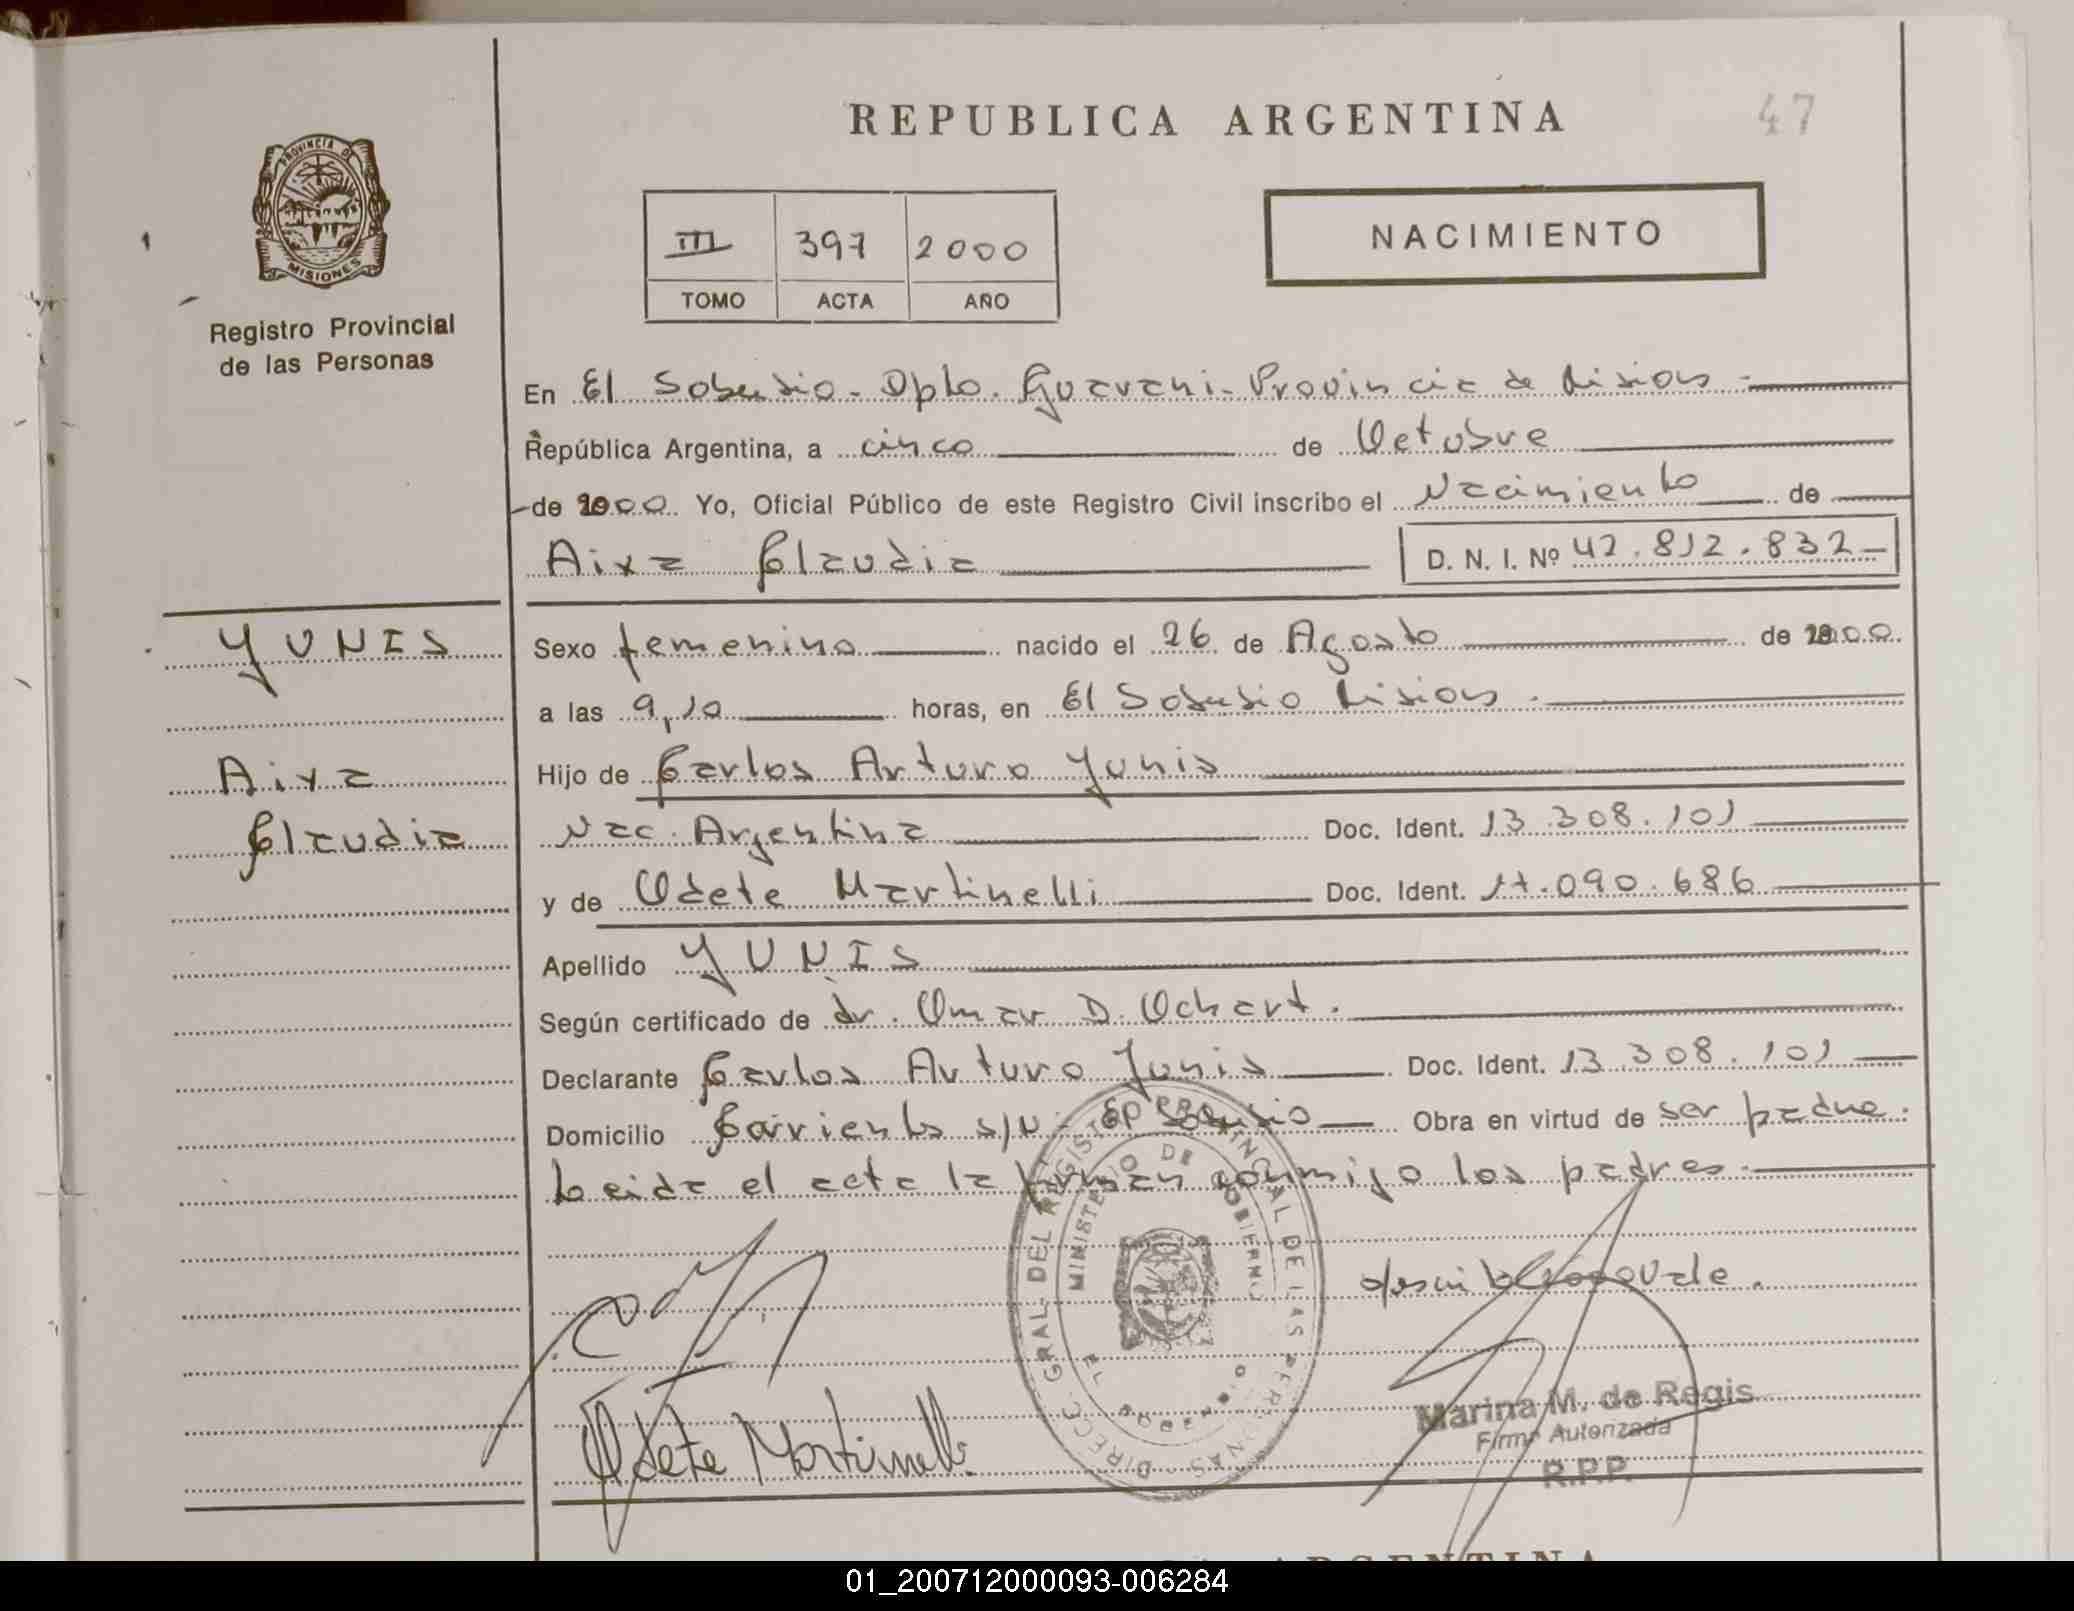 REPUBLICA ARGENTINA
47
PROVINCIA DE
MISIONES
Registro Provincial
de las Personas
III 397 2000
TOMO ACTA AÑO
NACIMIENTO
En El Soberbio - Dpto. Guarani - Provincia de Misiones.
República Argentina, a cinco de Octubre
de 2000 Yo, Oficial Público de este Registro Civil inscribo el Nacimiento de
Aixa Claudia D. N. I. Nº 42.812.832
YUNIS
Aixa
Claudia
Sexo femenino nacido el 26 de Agosto de 2000.
a las 9,10 horas, en El Soberbio Misiones.
Hijo de Carlos Arturo Yunis
Nac. Argentina Doc. Ident. 13.308.101
y de Odete Martinelli Doc. Ident. 17.090.686
Apellido YUNIS
Según certificado de dr. Omar D. Ochart.
Declarante Carlos Arturo Yunis Doc. Ident. 13.308.101
Domicilio Corrientes s/N - El Soberbio Obra en virtud de ser padre.
Leida el acta la firman conmigo los padres.
DIRECC. GRAL. DEL REGISTRO PROVINCIAL DE LAS PERSONAS
MINISTERIO DE GOBIERNO
Odete Martinelli
Marina M. de Regis
Firma Autorizada
R.P.P.
ARGENTINA
01_200712000093-006284